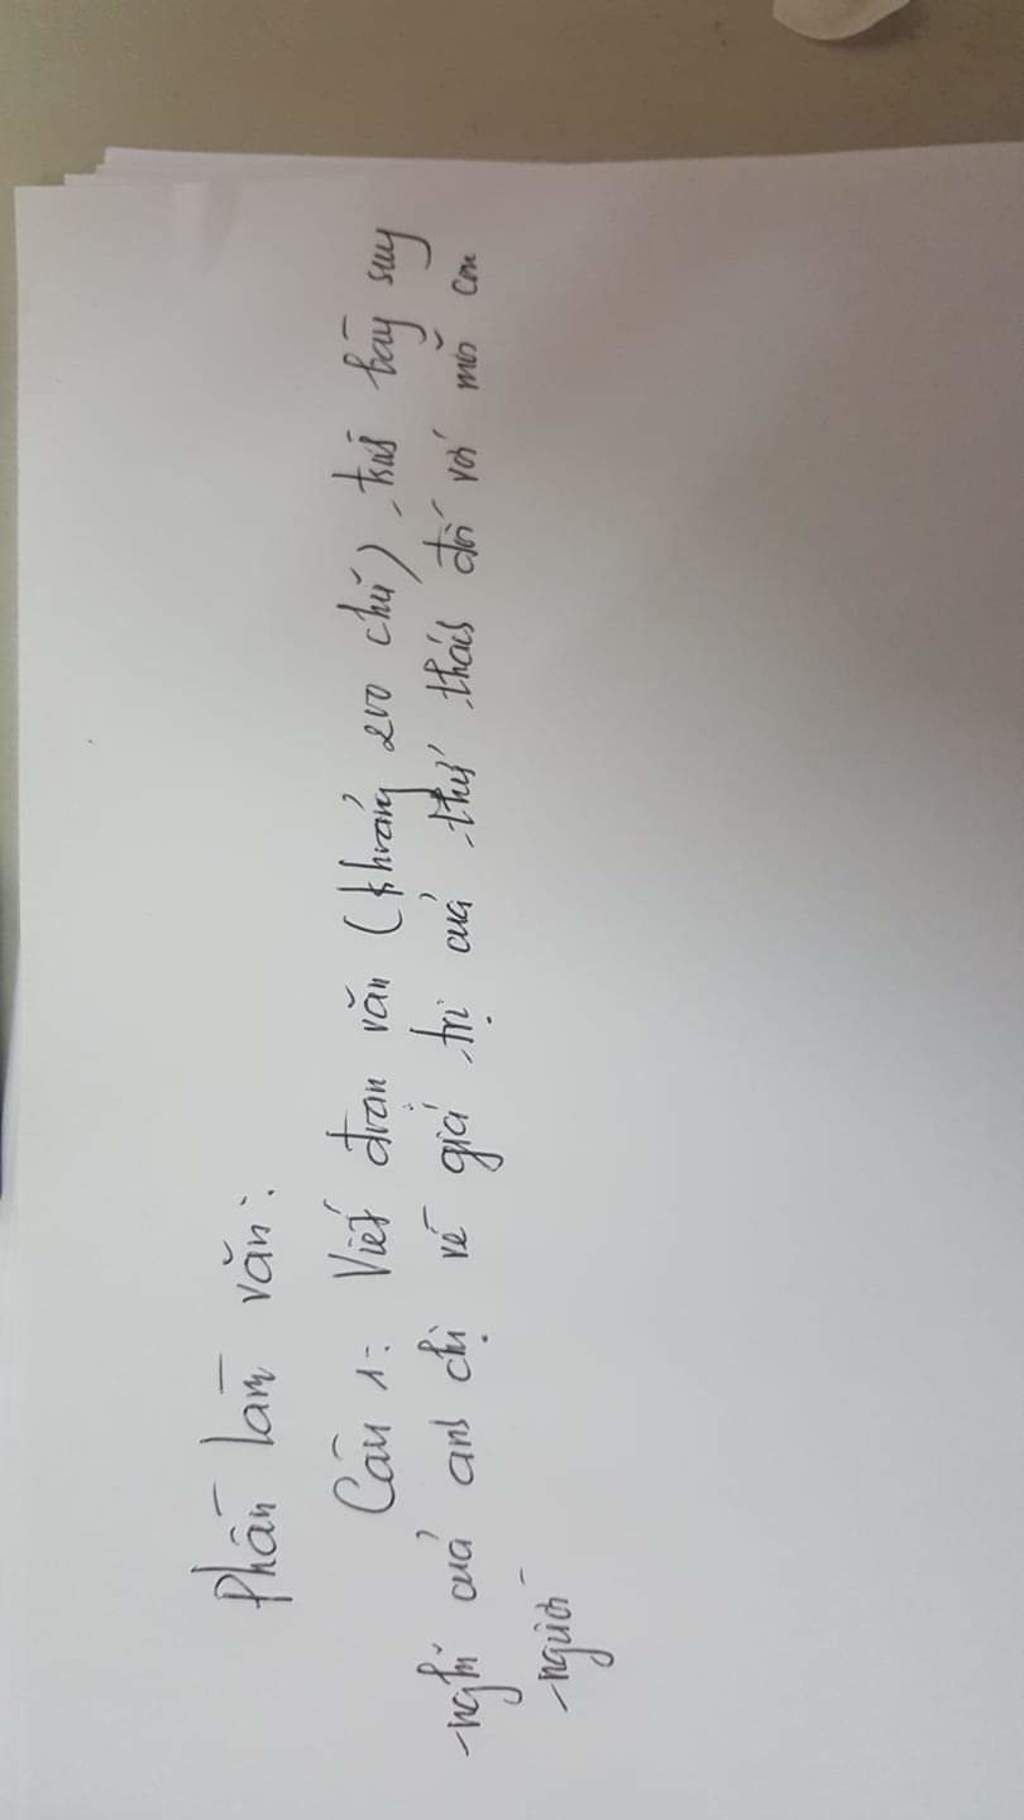 Phần làm văn:
Câu 1: Viết đoạn văn (khoảng 200 chữ) trình bày suy
nghĩ của anh chị về giá trị của thử thách đối với mỗi con
người